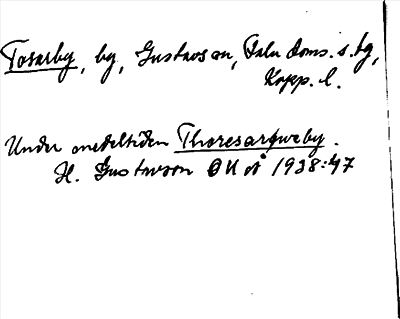 Tosarby, by, Gustavs sn, Falu doms. s. bg,
Kopp. l.
Under medeltiden Thoresarfweby.
H. Gustavson OUÅ 1938:47